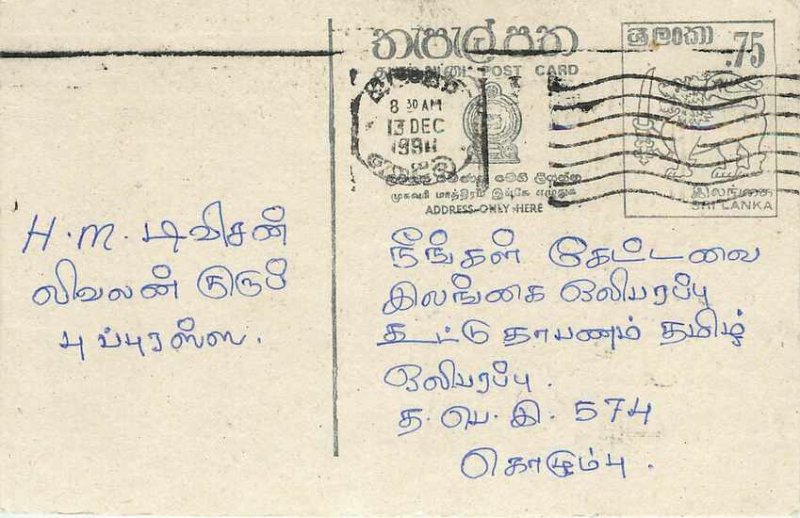 තැපැල්පත
POST CARD
ශ්‍රී ලංකා
.75
8 30 AM
13 DEC
1991
முகவரி மாத்திரம் இங்கே எழுதுக
ADDRESS ONLY HERE
இலங்கை
SRI LANKA
H.M. டிவிசன்
லிவலன் குரூப்
புப்புரஸ்ஸ.
நீங்கள் கேட்டவை
இலங்கை ஒலிபரப்பு
கூட்டு தாபணம் தமிழ்
ஒலிபரப்பு.
த. பெ. இ. 574
கொழும்பு.